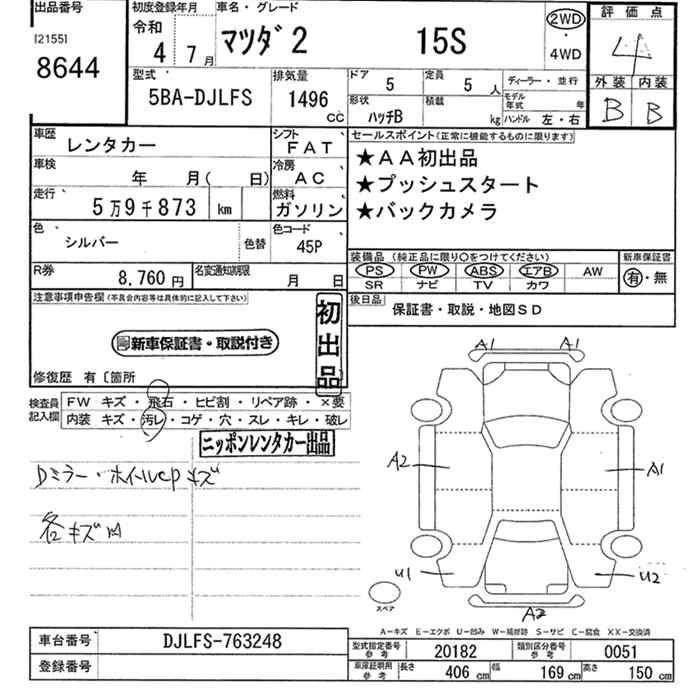 出品番号
[2155]
8644
初度登録年月
令和
4年 7月
車名・グレード
マツダ2 15S
2WD
・
4WD
評価点
4
外装 内装
B B
型式
5BA-DJLFS
排気量
1496 CC
ドア 5
定員 5 人
形状 ハッチB
積載 kg
ディーラー・並行
モデル年式 年
ハンドル 左・右
車歴 レンタカー
シフト FAT
車検 年 月( 日)
冷房 AC
走行 5万9千873 km
燃料 ガソリン
色 シルバー 色替
色コード 45P
R券 8,760円
名変通知期限 月 日
セールスポイント(正常に機能するものに限ります)
★AA初出品
★プッシュスタート
★バックカメラ
装備品(純正品に限り○をつけてください)
PS PW ABS エアB AW
SR ナビ TV カワ
新車保証書
有・無
後日品
保証書・取説・地図SD
注意事項申告欄(不具合内容等は具体的に記入して下さい)
新車保証書・取説付き
初出品
修復歴 有〔箇所
検査員記入欄
FW キズ・飛石・ヒビ割・リペア跡・×要
内装 キズ・汚レ・コゲ・穴・スレ・キレ・破レ
ニッポンレンタカー出品
Dミラー・ホイルcpキズ
各キズ凹
A1 A1
A2 A1
U1 U2
A2
スペア
A-キズ E-エクボ U-凹み W-補修跡 S-サビ C-腐食 XX-交換済
車台番号 DJLFS-763248
登録番号
型式指定番号 参考 20182
類別区分番号 参考 0051
車庫証明用 参考 長さ 406 cm 幅 169 cm 高さ 150 cm